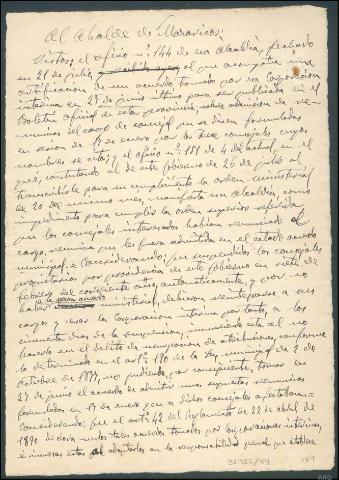 Al Alcalde de Maravicos:
Vistos: el oficio nº 144 de esa Alcaldía, fechado
en 21 de julio, al que acompaña una
certificación de un acuerdo tomado por esa Corporación
interina en 27 de junio último para ser publicada en el
Boletín oficial de esta provincia sobre admisión de re-
nuncias del cargo de concejal que se dicen formuladas
en sesión de 17 de enero por los trece concejales cuyos
nombres se cita; y el oficio nº 151 de 4 del actual, en el
que, contestando al de este gobierno de 26 de julio al
transcribirle para su cumplimiento la orden ministerial
de 20 del mismo mes, manifiesta esa Alcaldía como
impedimento para cumplir la orden superior referida
que los concejales interesados habían renunciado el
cargo, renuncia que les fuera admitida en el citado acuerdo
municipal. = Considerando: que suspendidos los concejales
propietarios por providencia de este gobierno en siete de
febrero del corriente año, automáticamente, y por no
haber ministerial, debieron reintegrarse a sus
cargos y cesar la Corporación interina por tanto, a los
cincuenta días de la suspensión, incurriendo esta al no
hacerlo en el delito de usurpación de atribuciones, conforme
lo determinado en el artº 190 de la Ley municipal de 2 de
octubre de 1877, no pudiendo, por consiguiente, tomar en
27 de junio el acuerdo de admitir unas supuestas renuncias
formuladas en 17 de enero que a dichos concejales afectaban =
Considerando: que el artº 42 del Reglamento de 22 de abril de
1890 declara nulos tales acuerdos tomados por Corporaciones interinas,
e incursos estas al adoptarlos en la responsabilidad penal que establece
104